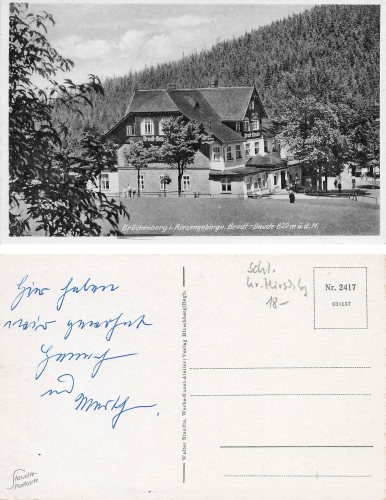 Brodt-Baude
Brückenberg i. Riesengebirge. Brodt-Baude 820 m ü. d. M.
Hier haben
wir gewohnt
und
Schl.
Kr. Hirschbg
18-
Nr. 2417
Walter Staudte, Werbe-Kunst-Atelier/Verlag Hirschberg/Rsgb.
Staudte-
Postkarte